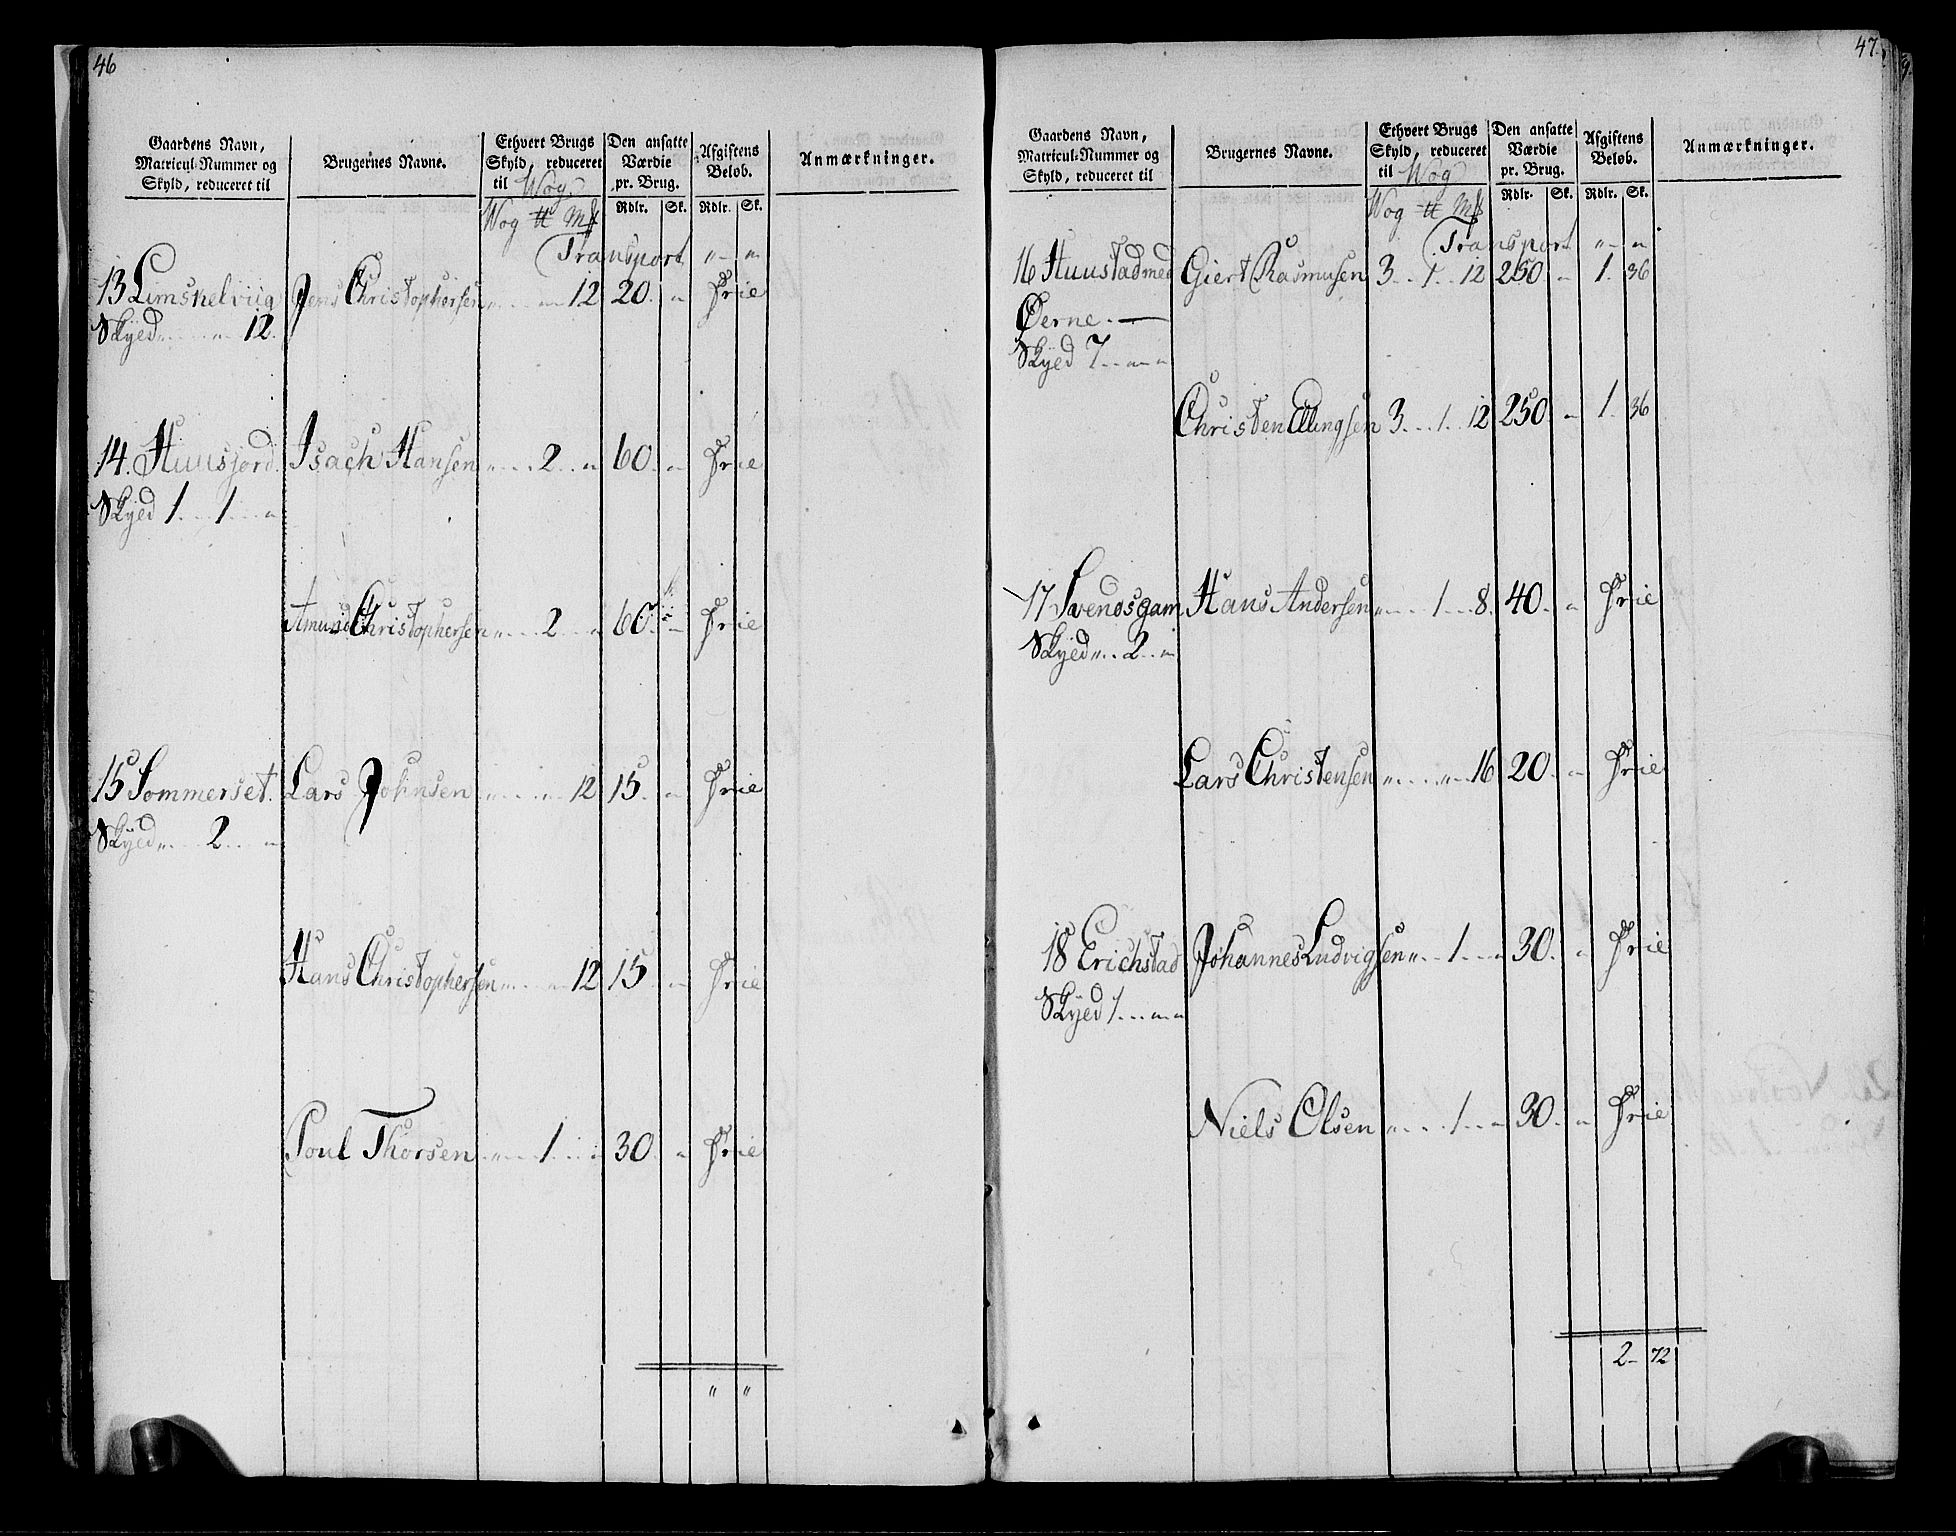 46
Gaardens Navn, Matricul-Nummer og Skyld, reduceret til
Brugernes Navne.
Ethvert Brugs Skyld, reduceret til Wog
Den ansatte Værdie pr. Brug.
Afgiftens Beløb.
Anmærkninger.
Wog ℔ M𝔏 Rdlr. Sk. Rdlr. Sk.
Transport " — "
13 Limskelviig Jens Christophersen " .. " 12 20. " Frie
Skyed " .. " 12.
14. Huusjord. Isach Hansen " .. 2 .. " 60. " Frie
Skyed 1 .. 1 .. "
Amund Christophersen " .. 2 .. " 60. " Frie
15 Sommerset. Lars Johnsen " .. " 12 15. " Frie
Skyed " .. 2 .. "
Hans Christophersen " .. " 12 15. " Frie
Poul Thorsen " .. 1 .. " 30. " Frie
" "
47.
Gaardens Navn, Matricul-Nummer og Skyld, reduceret til
Brugernes Navne.
Ethvert Brugs Skyld, reduceret til Wog
Den ansatte Værdie pr. Brug.
Afgiftens Beløb.
Anmærkninger.
Wog ℔ M𝔏 Rdlr. Sk. Rdlr. Sk.
Transport " — "
16 Huustad med Giert Rasmusen 3 .. 1 .. 12 250 " 1. 36
Øerne. —
Skyed 7 .. " .. "
Christen Ellingsen 3 .. 1 .. 12 250 " 1. 36
17 Svendsgam Hans Andersen " .. 1 .. 8. 40. " Frie
Skyed " .. 2 .. "
Lars Christensen " .. " 16 20. " Frie
18 Erichstad Johannes Ludvigsen " .. 1 .. " 30. " Frie
Skyed 1 .. " .. "
Niels Olsen " .. 1 .. " 30. " Frie
2 — 72